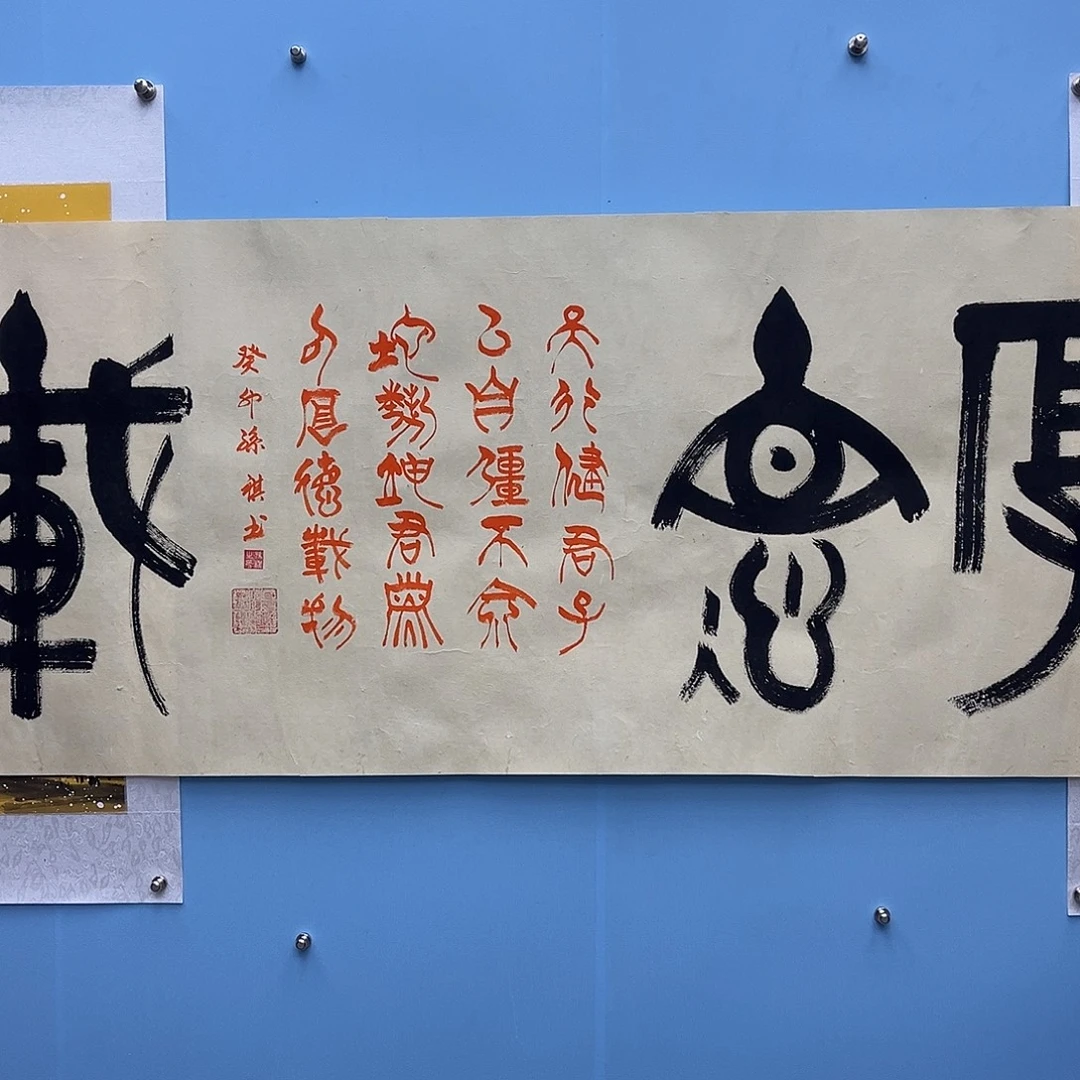 厚
德
天行健君子
以自彊不息
地勢坤君子
以厚德載物
癸卯孫祺书
載